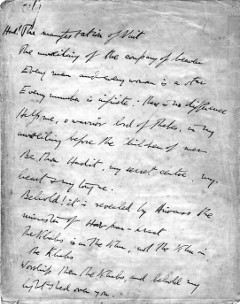 Had! The manifestation of Nuit
The unveiling of the company of heaven
Every man and every woman is a star
Every number is infinite: there is no difference
Help me, o warrior lord of Thebes, in my
unveiling before the children of men
Be thou Hadit, my secret centre, my
heart & my tongue.
Behold! it is revealed by Aiwass the
minister of Hoor-paar-kraat
The Khabs is in the Khu, not the Khu in
the Khabs
Worship then the Khabs, and behold my
light shed over you.